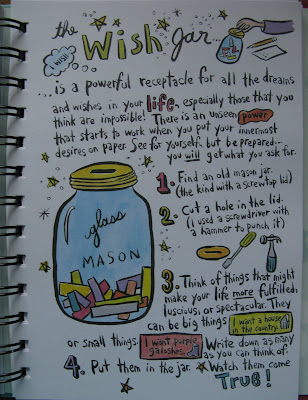 the Wish Jar
WISH!
... is a powerful receptacle for all the dreams
and wishes in your life, especially those that you
think are impossible! There is an unseen power
that starts to work when you put your innermost
desires on paper. See for yourself, but be prepared--
you will get what you ask for.
1. Find an old mason jar.
(the kind with a screwtop lid)
2. Cut a hole in the lid.
(I used a screwdriver with
a hammer to punch it)
glass
MASON
3. Think of things that might
make your life more fulfilled,
luscious, or spectacular. They
can be big things I want a house
in the country.
or small things. I want purple
galoshes. Write down as many
as you can think of.
4. Put them in the jar. Watch them come
True!